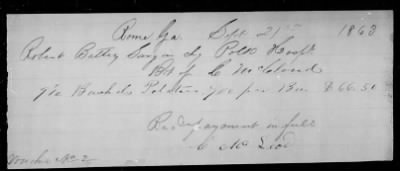 Rome Ga. Sept 21st 1863
Robert Battey Surgeon Polk Hosp't
Bot of C McCleod
Bushels Potatoes per Bu $66.50
Rec'd payment in full
C McLeod
Voucher No 2